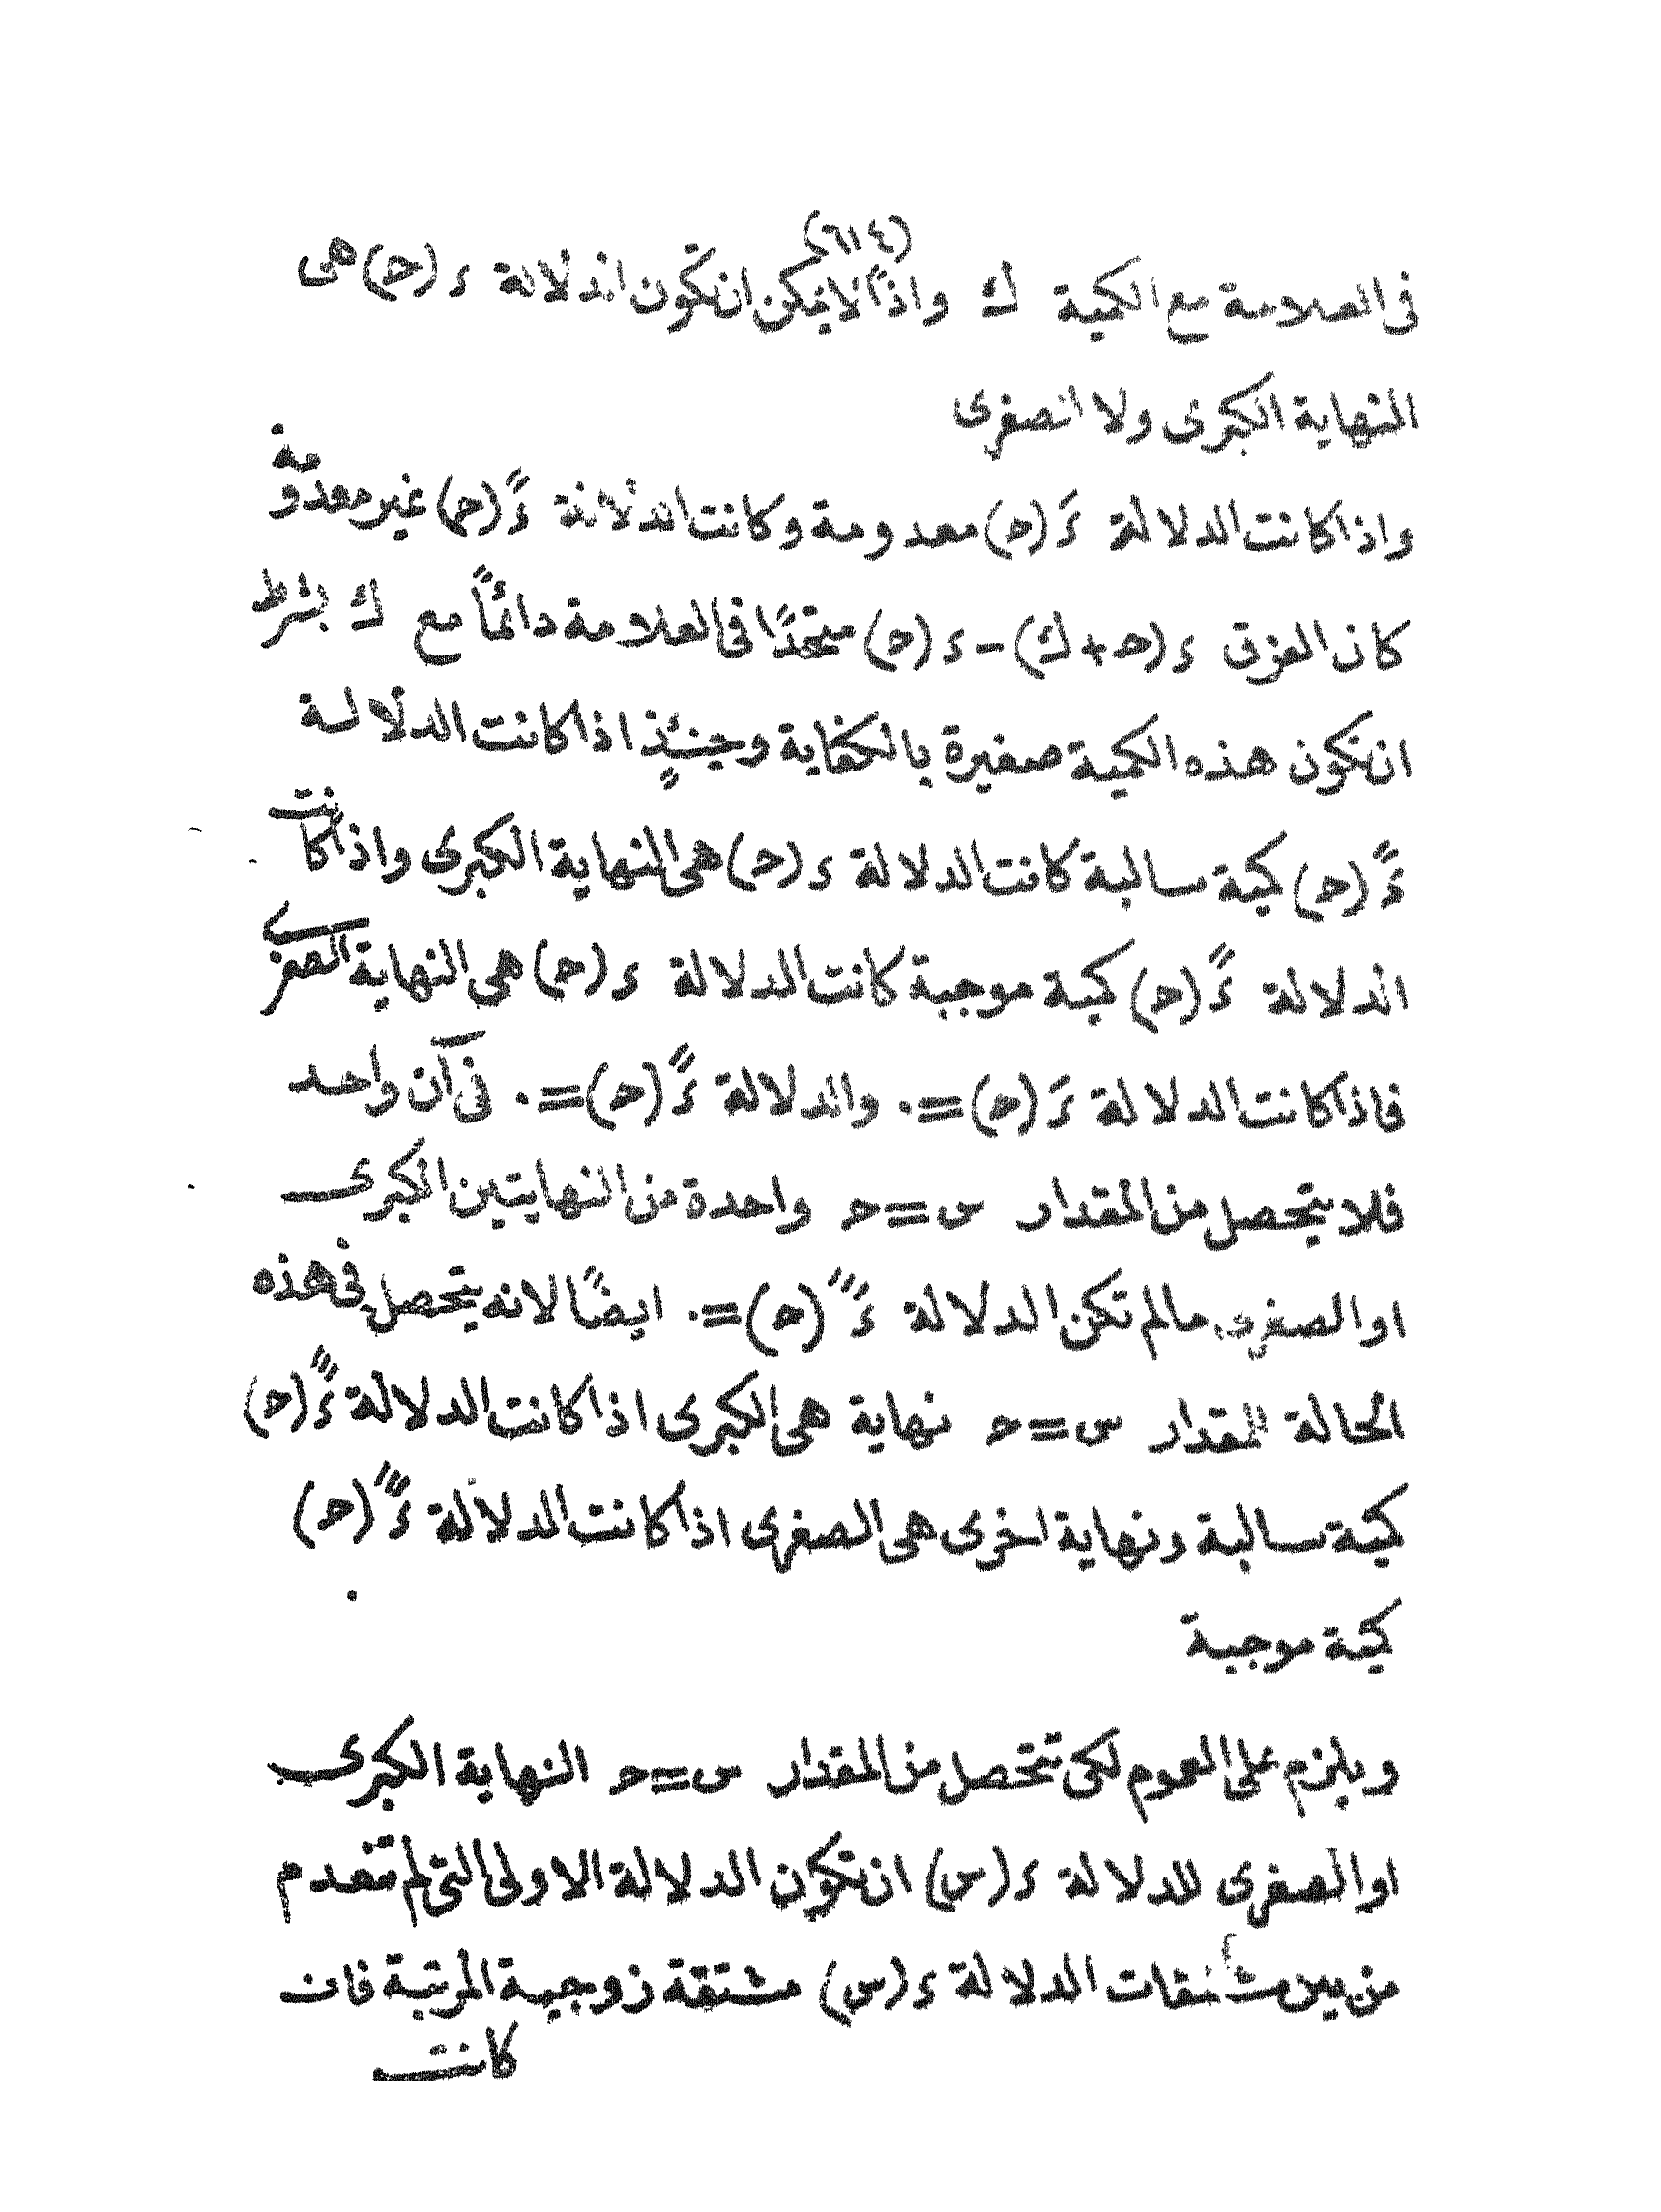 (٦١٤)
فى العلامة مع الكمية ك واذًا لا يمكن ان تكون الدلالة د (حـ) هى
النهاية الكبرى ولا الصغرى
واذا كانت الدلالة دَ (حـ) معدومة وكانت الدلالة دً (حـ) غير معدومة
كان الفرق د (حـ + ك) - د (حـ) متحدًا فى العلامة دائمًا مع ك بشرط
ان تكون هذه الكمية صغيرة بالكفاية وحينئذٍ اذا كانت الدلالة
دً (حـ) كمية سالبة كانت الدلالة د (حـ) هى النهاية الكبرى واذا كانت
الدلالة دً (حـ) كمية موجبة كانت الدلالة د (حـ) هى النهاية الصغرى
فاذا كانت الدلالة دَ (حـ) = ٠ والدلالة دً (حـ) = ٠ فى آن واحد
فلا يتحصل من المقدار س = حـ واحدة من النهايتين الكبرى
او الصغرى مالم تكن الدلالة د‴ (حـ) = ٠ ايضًا لانه يتحصل فى هذه
الحالة للمقدار س = حـ نهاية هى الكبرى اذا كانت الدلالة د⁗ (حـ)
كمية سالبة ونهاية اخرى هى الصغرى اذا كانت الدلالة د⁗ (حـ)
كمية موجبة
ويلزم على العموم لكى تتحصل من المقدار س = حـ النهاية الكبرى
او الصغرى للدلالة د (س) ان تكون الدلالة الاولى التى لم تنعدم
من بين مشتقات الدلالة د (س) مشتقة زوجية المرتبة فان
كانت